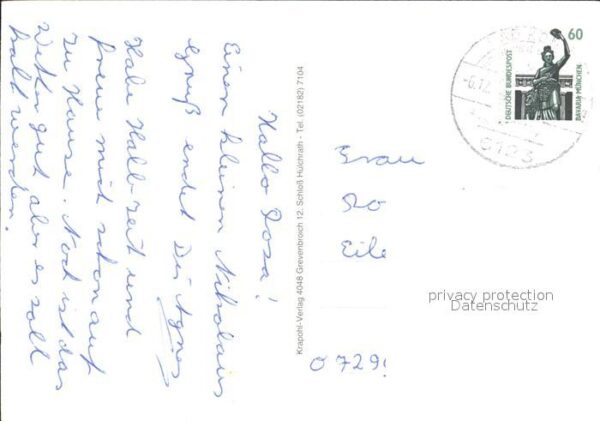 Hallo Rosa!
Einen kleinen Nikolaus
Gruß endet Dir Agnes
Habe Halbzeit und
freue mich schon auf
zu Hause. Noch ist das
Wetter gut aber es soll
kalt werden.
Krapohl-Verlag 4048 Grevenbroich 12, Schloß Hülchrath - Tel. (02182) 7104
60
DEUTSCHE BUNDESPOST
BAVARIA MÜNCHEN
-6.12
6123
Frau
Ro
Eile
privacy protection
Datenschutz
O 729!